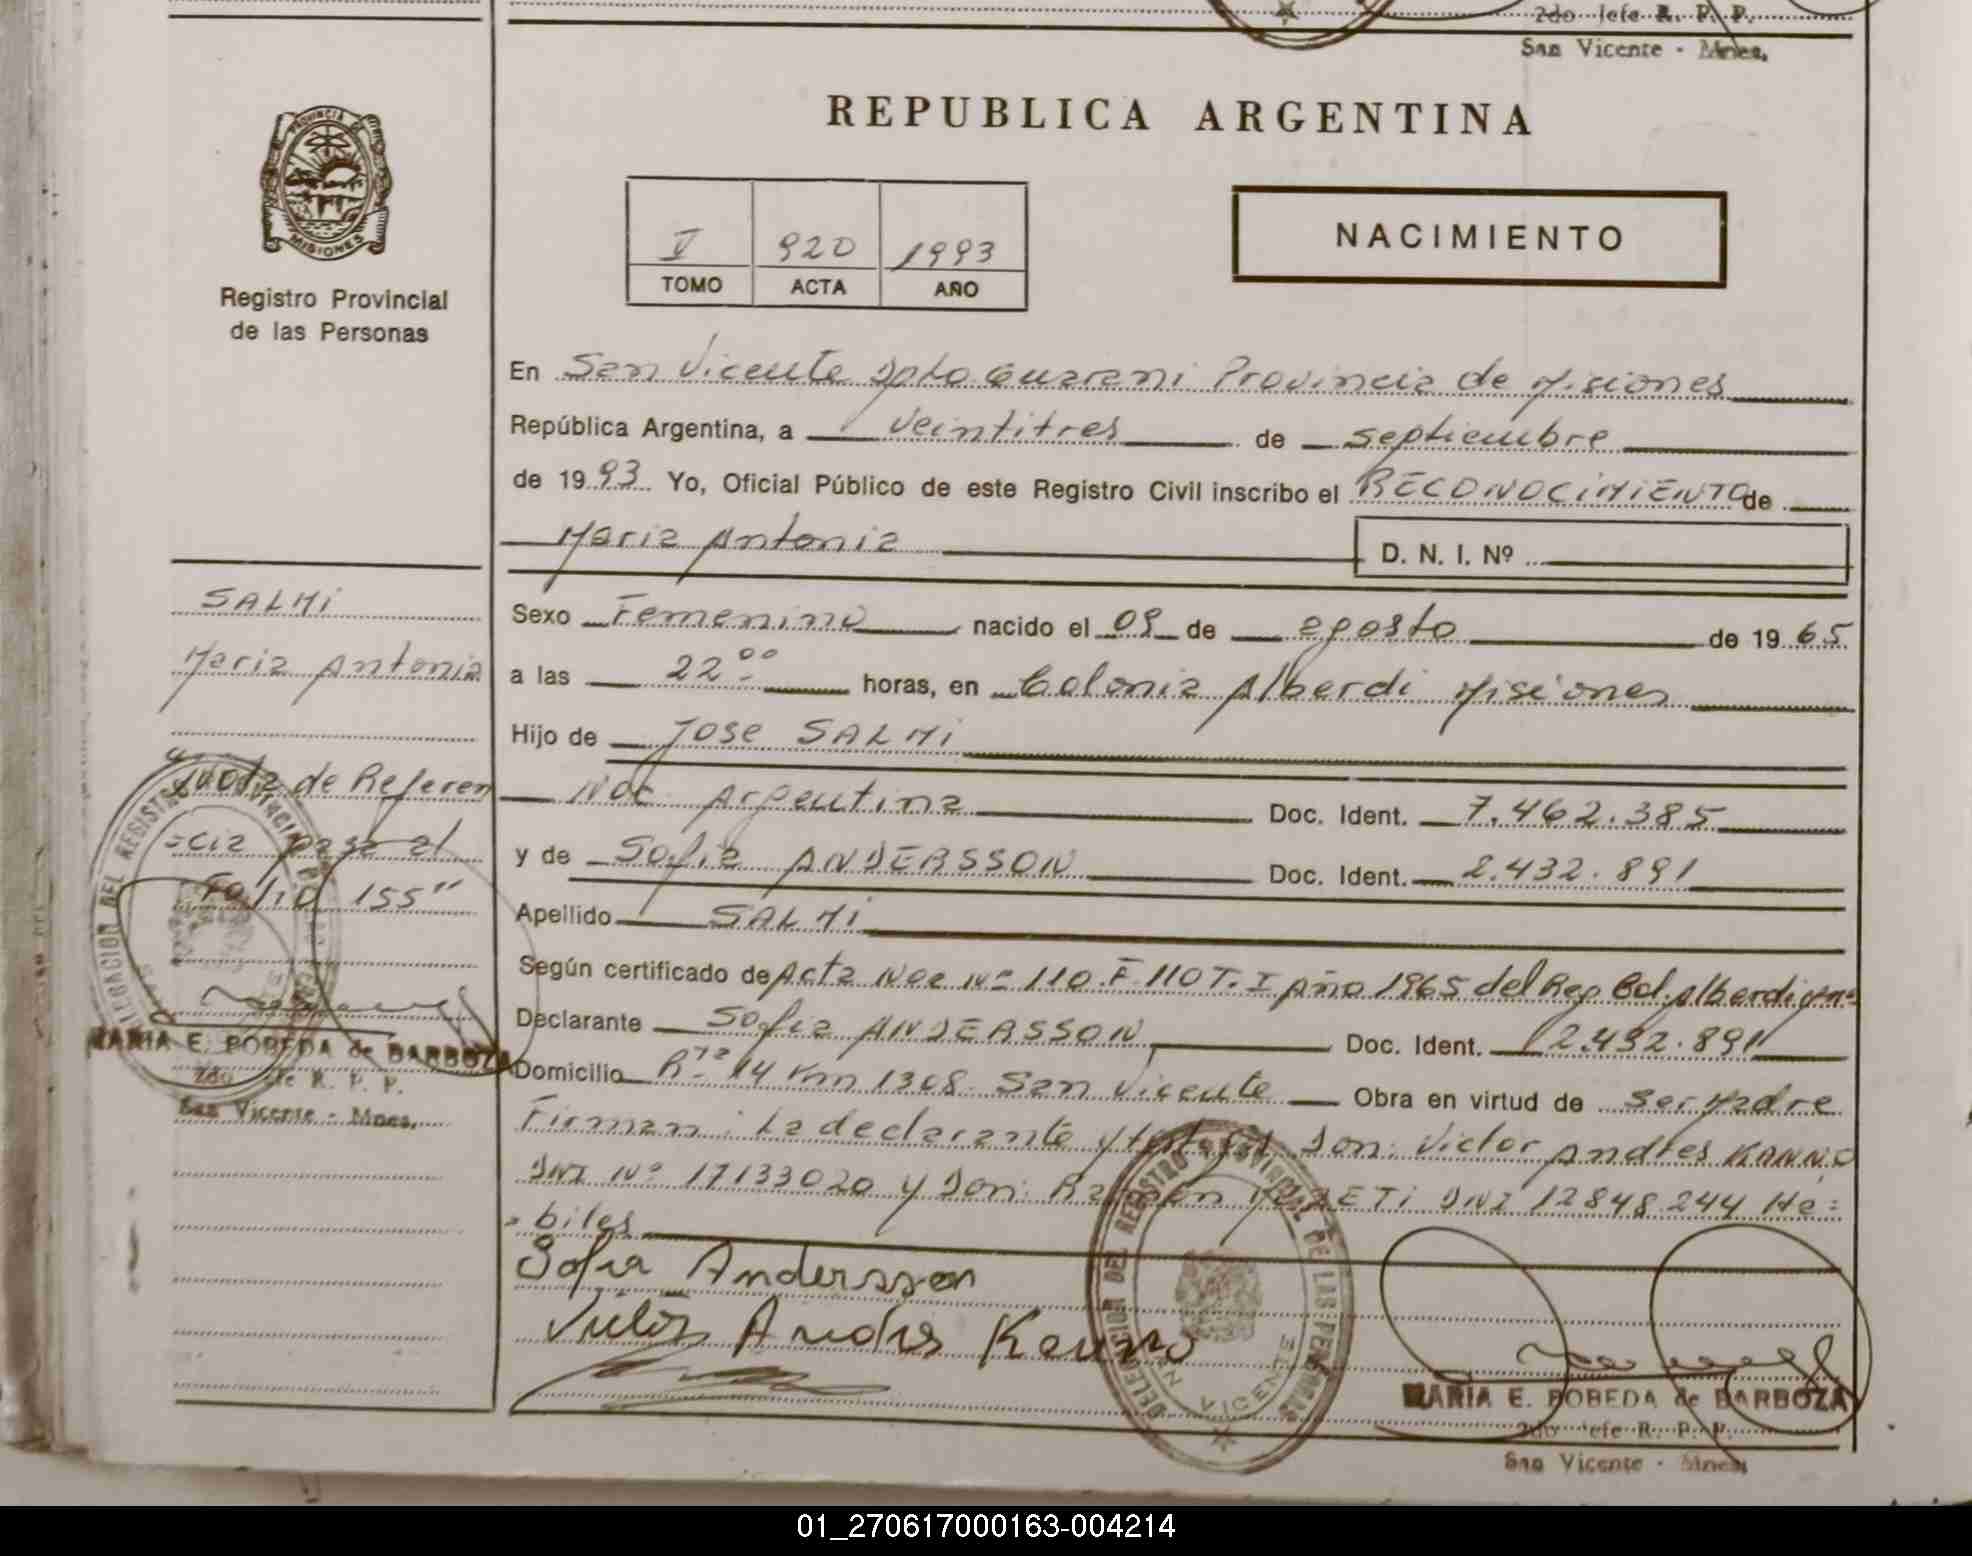 2do Jefe R. P. P.
San Vicente - Mnes.
PROVINCIA DE
MISIONES
Registro Provincial
de las Personas
REPUBLICA ARGENTINA
V 920 1993
TOMO ACTA AÑO
NACIMIENTO
En San Vicente Dpto Guarani Provincia de Misiones
República Argentina, a veintitres de septiembre
de 1993 Yo, Oficial Público de este Registro Civil inscribo el RECONOCIMIENTO de
Maria Antonia D. N. I. Nº
Sexo Femenino nacido el 09 de agosto de 1965
a las 22⁰⁰ horas, en Colonia Alberdi Misiones
Hijo de Jose SALMi
Nac Argentina Doc. Ident. 7.462.385
y de Sofia ANDERSSON Doc. Ident. 2.432.891
Apellido SALMi
Según certificado de Acta Nac Nº 110 F. 110 T. I Año 1965 del Reg Col. Alberdi
Declarante Sofia ANDERSSON Doc. Ident. 2.432.891
Domicilio R 14 Km 1308 San Vicente Obra en virtud de ser Madre
Firman: La declarante y testigos Don: Victor Andres KANNO
DNI Nº 17133020 y Don: DNI 12848.244 Há=
=biles
Sofia Andersson
Andres
DELEGACION DEL REGISTRO PROVINCIAL DE LAS PERSONAS
SAN VICENTE
MARIA E. POBEDA de BARBOZA
2do Jefe R. P. P.
San Vicente - Mnes.
SALMi
Maria Antonia
"Nota de Referen
=cia pasa al
Folio 155"
MARIA E. POBEDA de BARBOZA
2do Jefe R. P. P.
San Vicente - Mnes.
01_270617000163-004214